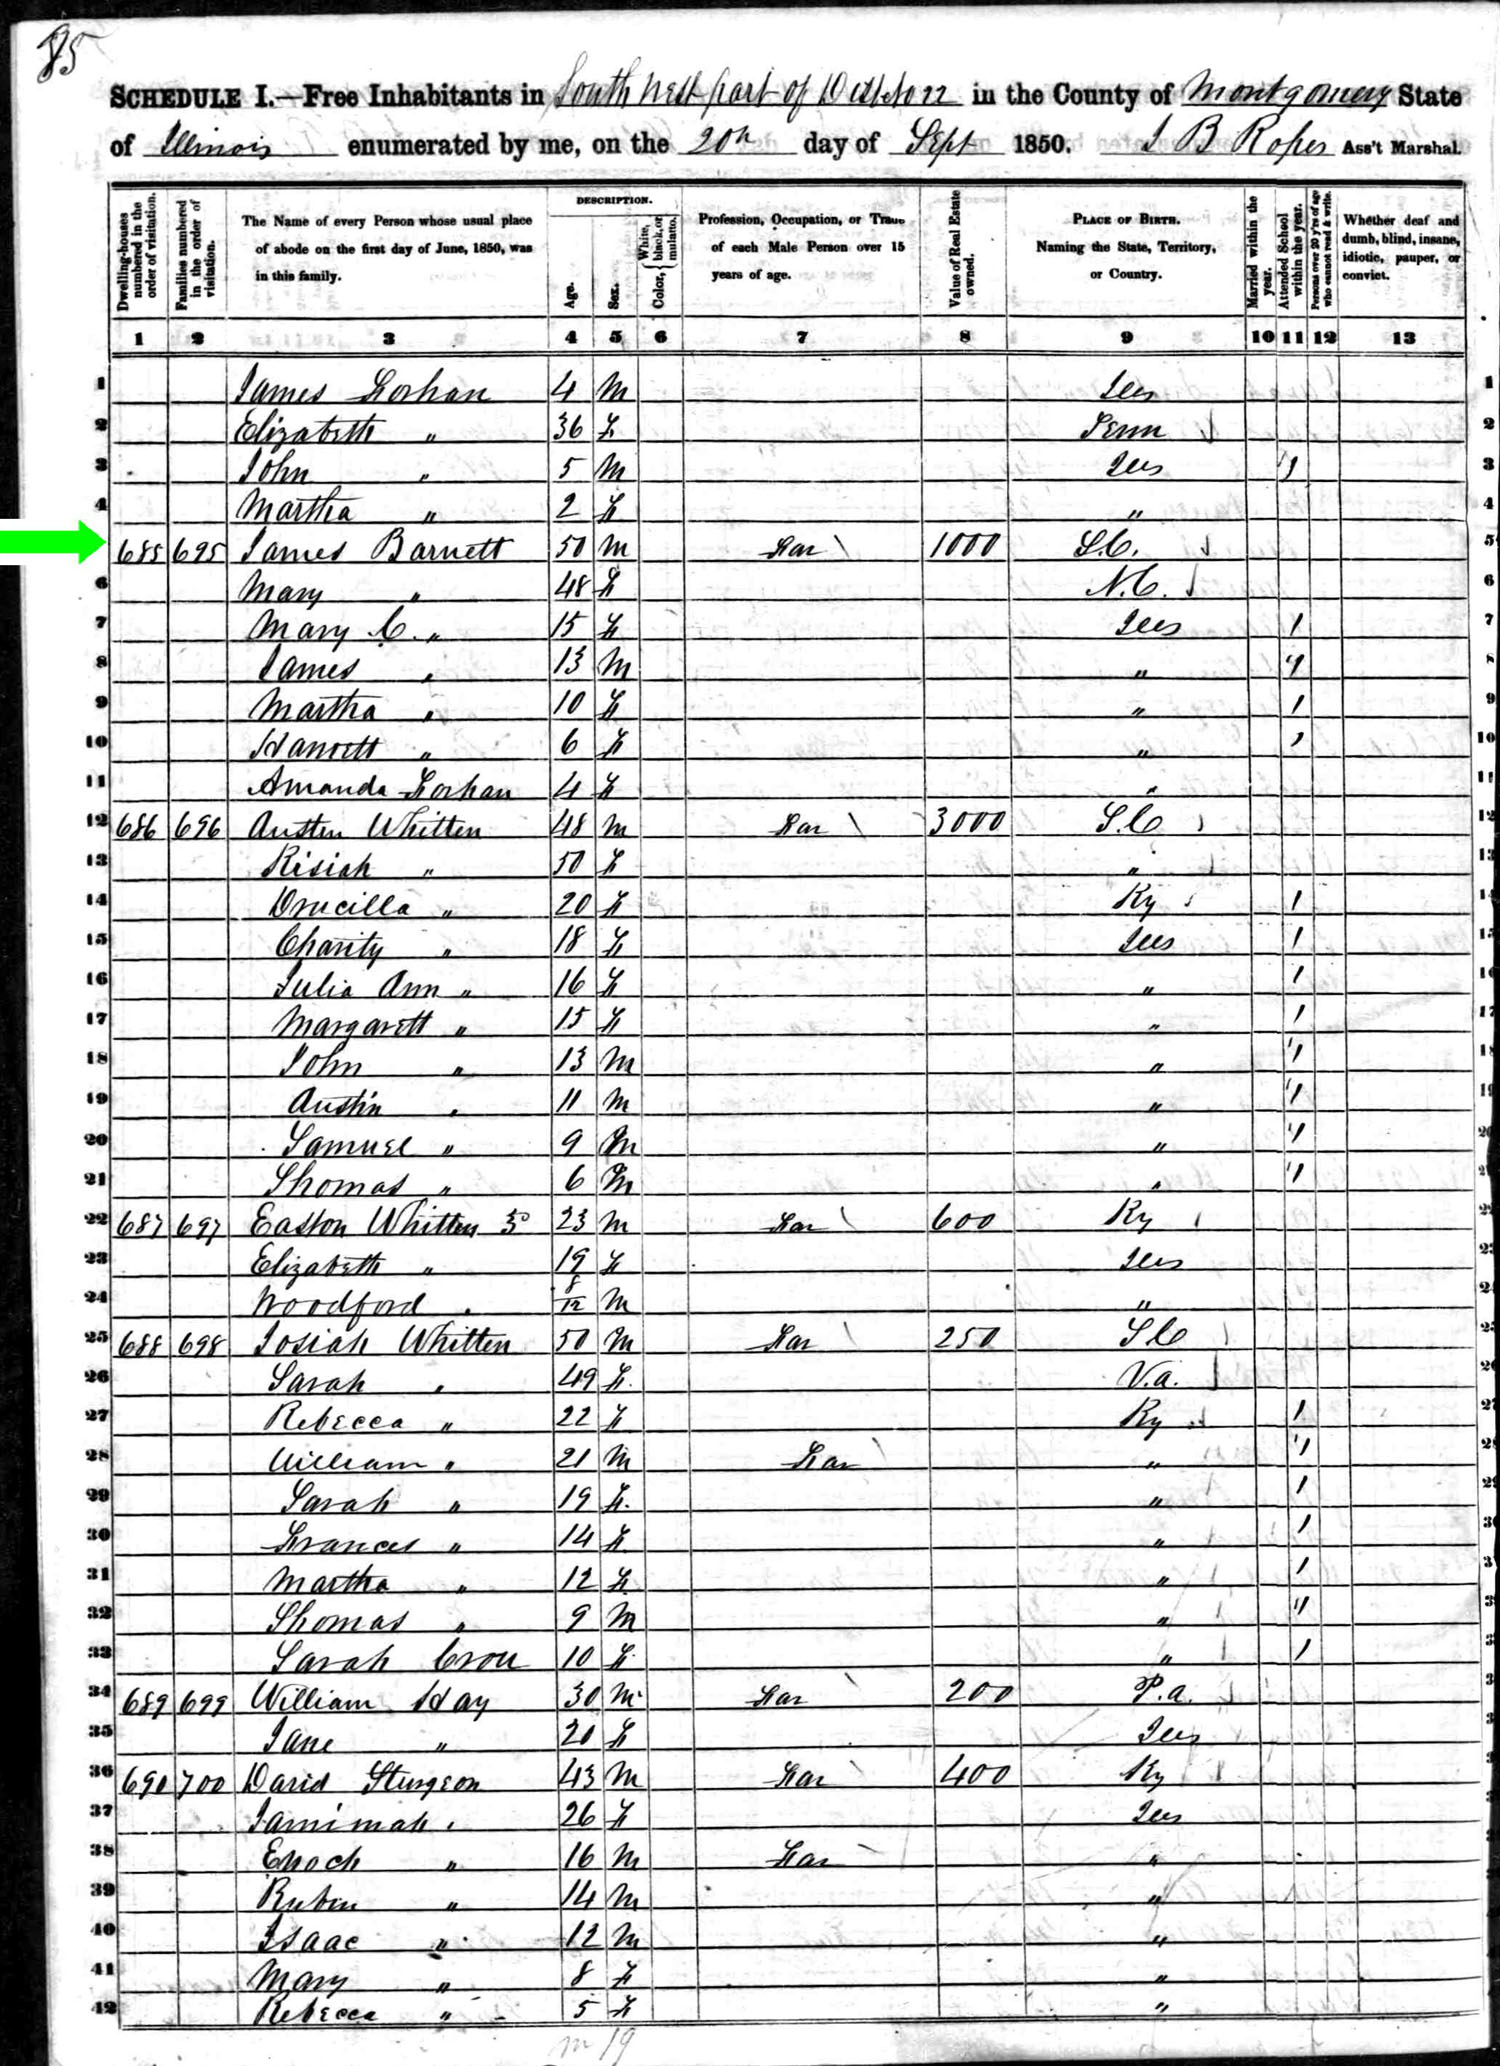 85
SCHEDULE I.—Free Inhabitants in South West part of Dist No 22 in the County of Montgomery State
of Illinois enumerated by me, on the 20th day of Sept 1850. J B Roper Ass't Marshal.
Dwelling-houses numbered in the order of visitation.
Families numbered in the order of visitation.
The Name of every Person whose usual place of abode on the first day of June, 1850, was in this family.
DESCRIPTION.
Age.
Sex.
Color, { White, black, or mulatto.
Profession, Occupation, or Trade of each Male Person over 15 years of age.
Value of Real Estate owned.
PLACE OF BIRTH. Naming the State, Territory, or Country.
Married within the year.
Attended School within the year.
Persons over 20 y'rs of age who cannot read & write.
Whether deaf and dumb, blind, insane, idiotic, pauper, or convict.
1 2 3 4 5 6 7 8 9 10 11 12 13
1 James 4 M Ills 1
2 Elizabeth " 36 F Tenn 2
3 John " 5 M Ills 1 3
4 Martha " 2 F " 4
5 685 695 James Barnett 50 M Far 1000 S.C. 5
6 Mary " 48 F N.C. 6
7 Mary C. " 15 F Ills 1 7
8 James " 13 M " 1 8
9 Martha " 10 F " 1 9
10 Harriett " 6 F " 1 10
11 Amanda 4 F " 11
12 686 696 Austin Whitten 48 M Far 3000 S.C 12
13 Kisiah " 50 F " 13
14 Drucilla " 20 F Ky 1 14
15 Charity " 18 F Ills 1 15
16 Julia Ann " 16 F " 1 16
17 Margarett " 15 F " 1 17
18 John " 13 M " 1 18
19 Austin " 11 M " 1 19
20 Samuel " 9 M " 1 20
21 Thomas " 6 M " 1 21
22 687 697 Easton Whitten 23 M Far 600 Ky 22
23 Elizabeth " 19 F Ills 23
24 Woodford " 8/12 M " 24
25 688 698 Josiah Whitten 50 M Far 250 S C 25
26 Sarah " 49 F V.a. 26
27 Rebecca " 22 F Ky 1 27
28 William " 21 M Far " 1 28
29 Sarah " 19 F " 1 29
30 Frances " 14 F " 1 30
31 Martha " 12 F " 1 31
32 Thomas " 9 M " 1 32
33 Sarah 10 F " 1 33
34 689 699 William Hay 30 M Far 200 P.a.
35 Jane " 20 F Ills
36 690 700 David Sturgeon 43 M Far 400 Ky
37 Jamimah " 26 F Ills
38 Enoch " 16 M Far "
39 Rubin " 14 M "
40 Isaac " 12 M "
41 Mary " 8 F "
42 Rebecca " 5 F "
m 19